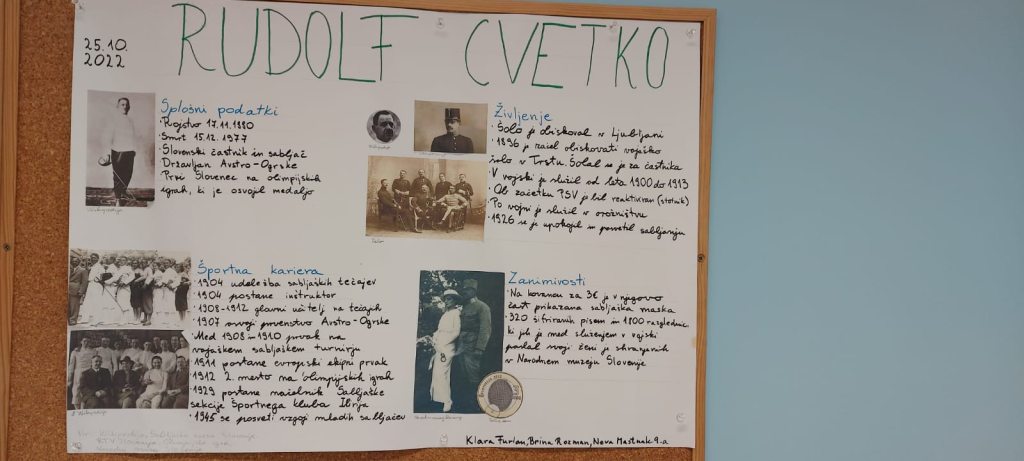 RUDOLF CVETKO
25.10.
2022
Splošni podatki
Rojstvo 17.11.1880
Smrt 15.12.1977
Slovenski častnik in sabljač
Državljan Avstro-Ogrske
Prvi Slovenec na olimpijskih
igrah, ki je osvojil medaljo
Življenje
· Šolo je obiskoval v Ljubljani
· 1896 je začel obiskovati vojaško
šolo v Trstu. Šolal se je za častnika
· V vojski je služil od leta 1900 do 1913
· Ob začetku PSV je bil reaktiviran (stotnik)
· Po vojni je služil v orožništvu
· 1926 se je upokojil in posvetil sabljanju
Športna kariera
· 1904 udeležba sabljaških tečajev
· 1904 postane inštruktor
· 1908-1912 glavni učitelj na tečajih
· 1907 osvoji prvenstvo Avstro-Ogrske
· Med 1908 in 1910 prvak na
vojaškem sabljaškem turnirju
· 1911 postane evropski ekipni prvak
· 1912 2. mesto na olimpijskih igrah
· 1929 postane načelnik Sabljaške
sekcije Športnega kluba Ilirija
· 1945 se posveti vzgoji mladih sabljačev
Zanimivosti
· Na kovancu za 3€ je v njegovo
čast prikazana sabljaška maska
· 320 šifriranih pisem in 1800 razglednic,
ki jih je med služenjem v vojski
poslal svoji ženi je shranjenih
v Narodnem muzeju Slovenije
Klara Furlan, Brina Rozman, Neva Mastnak 9.a